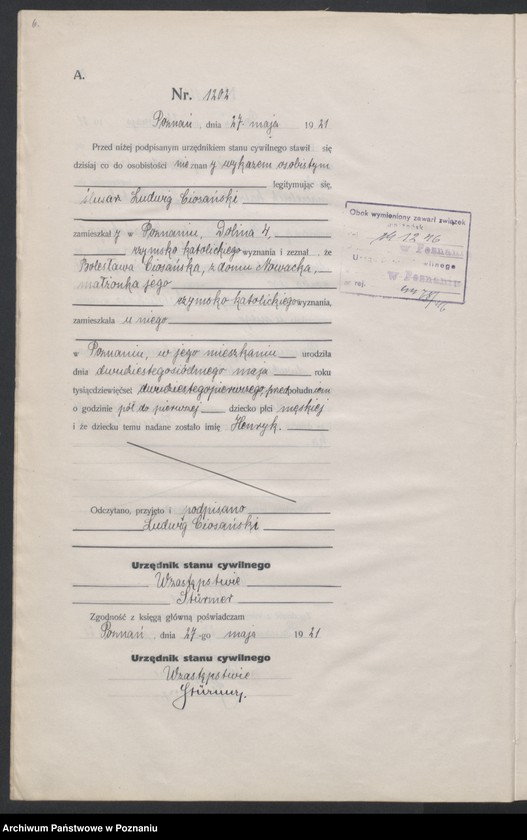 6.
A.
Nr. 1202.
Poznań, dnia 27. maja 1921
Przed niżej podpisanym urzędnikiem stanu cywilnego stawił się
dzisiaj co do osobistości nieznany wykazem osobistym
legitymując się,
ślusarz Ludwig Ciosański
zamieszkały w Poznaniu, Dolina 4,
rzymsko katolickiego wyznania i zeznał, że
Bolesława Ciosańska, z domu Nowacka,
małżonka jego
rzymsko katolickiego wyznania,
zamieszkała u niego
w Poznaniu, w jego mieszkaniu urodziła
dnia dwudziestegosiódmego maja roku
tysiącdziewięćset dwudziestegopierwszego, przedpołudniem
o godzinie pół do pierwszej dziecko płci męskiej
i że dziecku temu nadane zostało imię Henryk.
Odczytano, przyjęto i podpisano
Ludwig Ciosański
Urzędnik stanu cywilnego
W zastępstwie
Stürmer
Zgodność z księgą główną poświadczam
Poznań, dnia 27-go maja 1921
Urzędnik stanu cywilnego
W zastępstwie
Stürmer.
Obok wymieniony zawarł związek
w Poznaniu
cywilnego
w Poznaniu
rej.
Archiwum Państwowe w Poznaniu